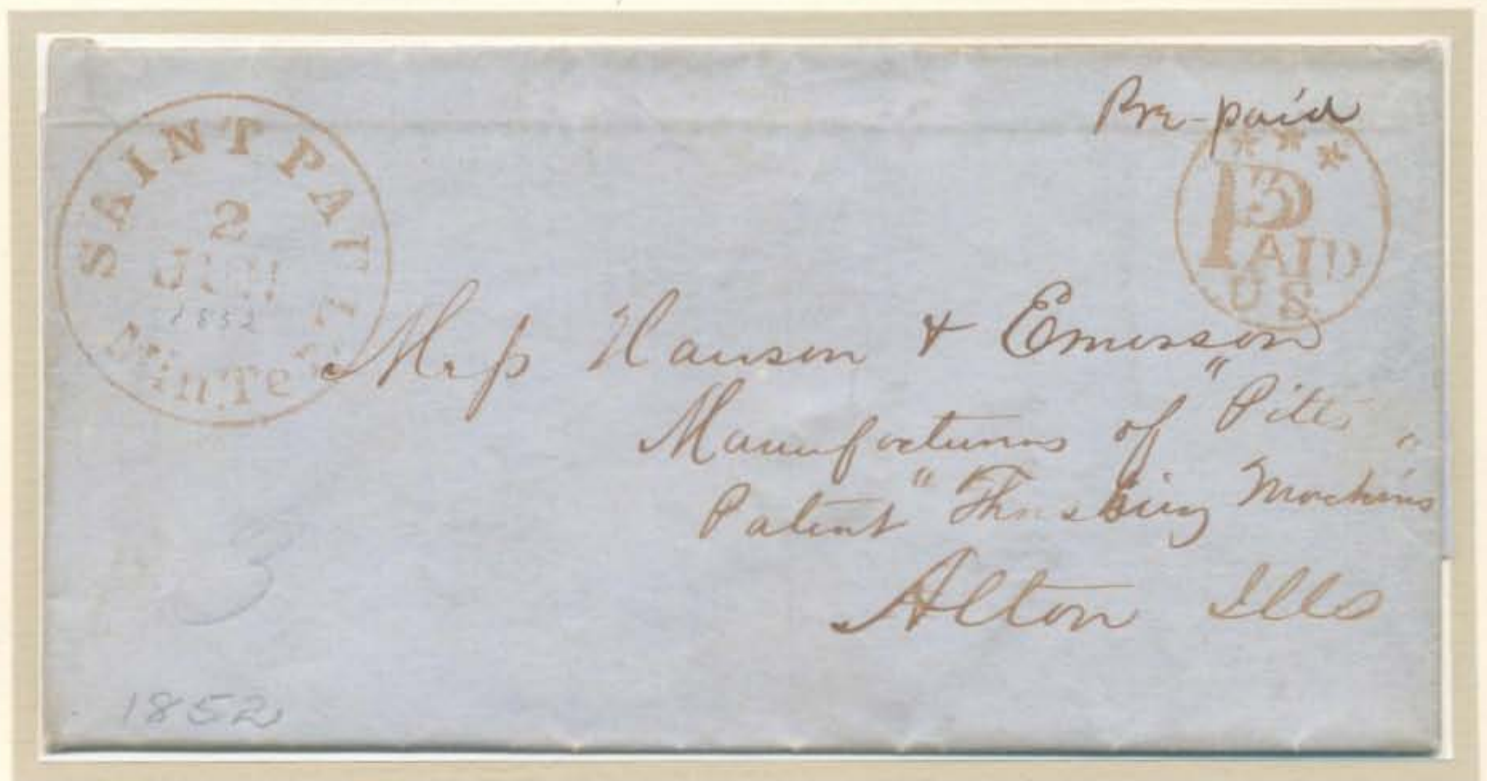 Pre-paid
SAINT PAUL
2
JUN
1852
Min.Te
3
PAID
US
Mess Hanson & Emerson
Manufacturers of "Pitts"
Patent "Thrashing Machins
Alton Ills
3
1852